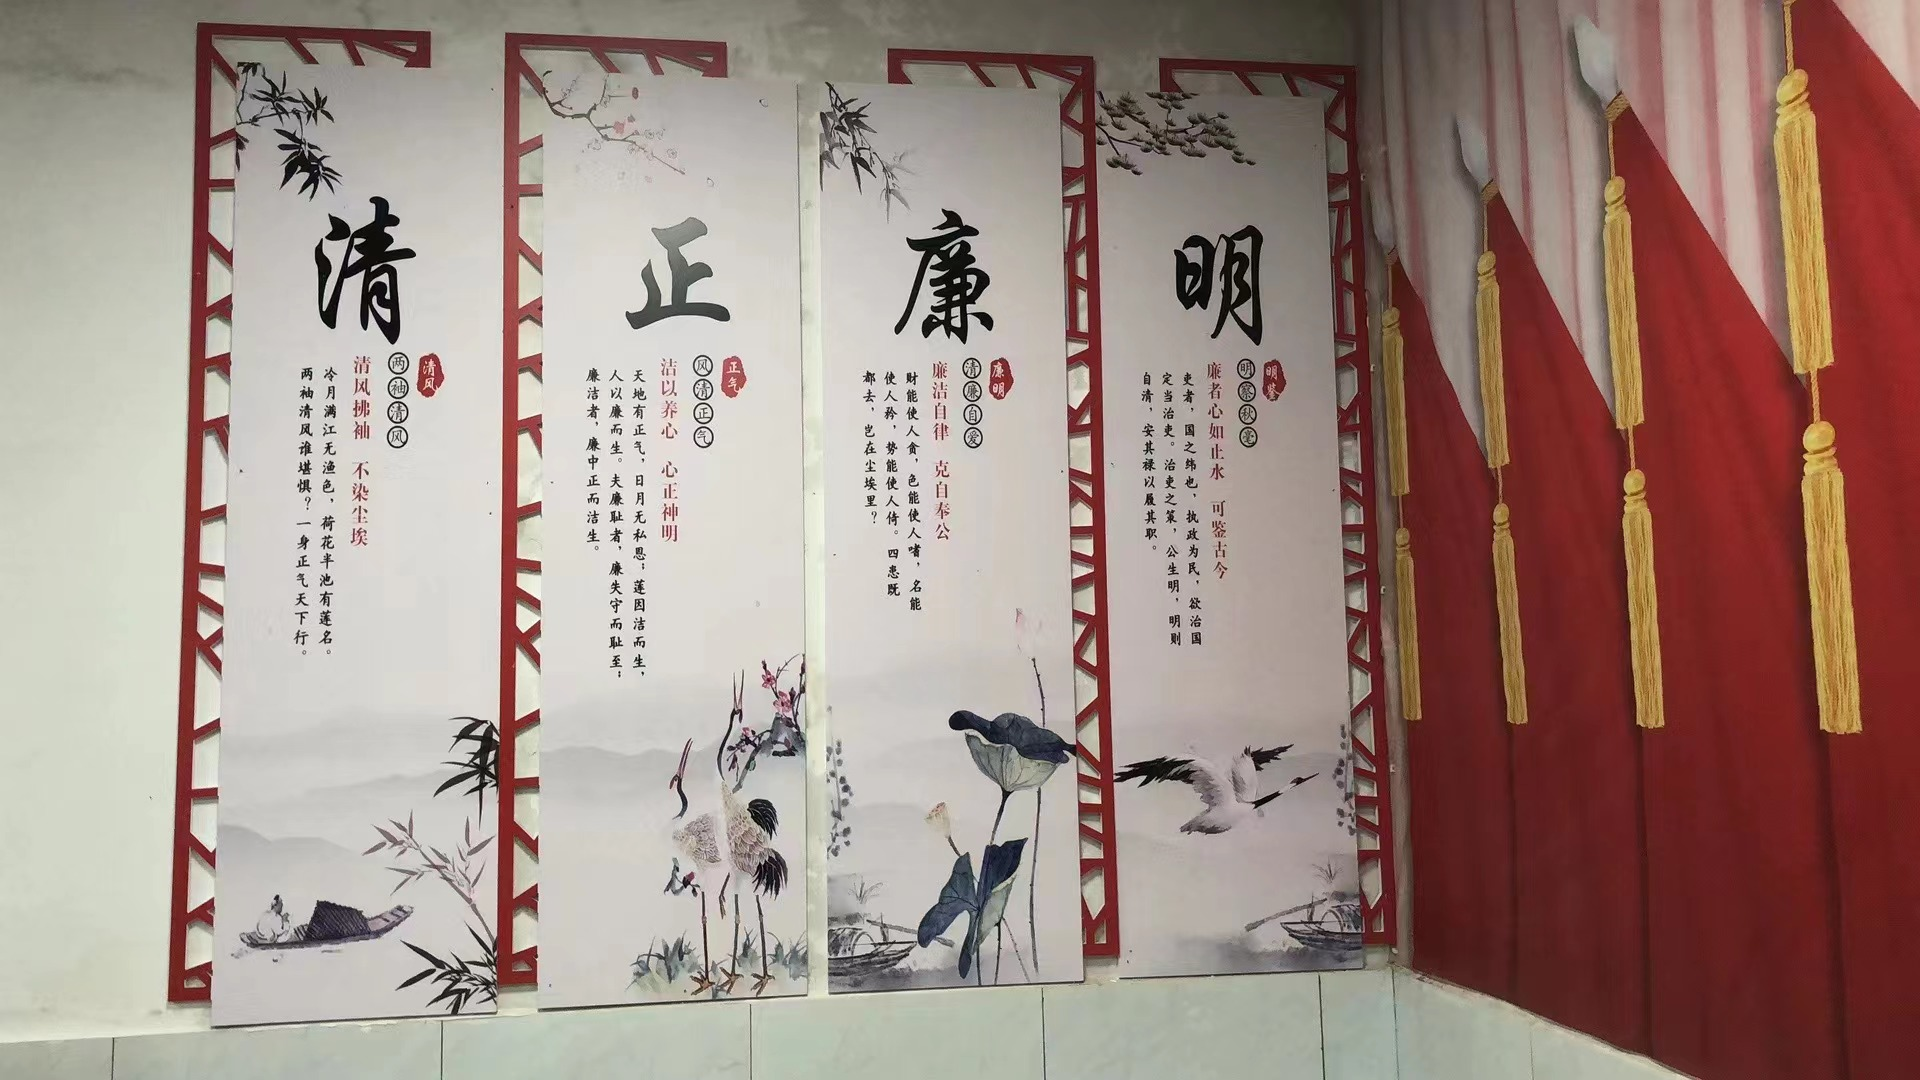 清
清风
两袖清风
清风拂袖 不染尘埃
冷月满江无渔色，荷花半池有莲名。
两袖清风谁堪惧？一身正气天下行。
正
正气
风清正气
洁以养心 心正神明
天地有正气，日月无私恩；莲因洁而生，
人以廉而生。夫廉耻者，廉失守而耻至；
廉洁者，廉中正而洁生。
廉
廉明
清廉自爱
廉洁自律 克自奉公
财能使人贪，色能使人嗜，名能
使人矜，势能使人倚。四患既
都去，岂在尘埃里？
明
明鉴
明察秋毫
廉者心如止水 可鉴古今
吏者，国之纬也，执政为民，欲治国
定当治吏。治吏之策，公生明，明则
自清，安其禄以履其职。